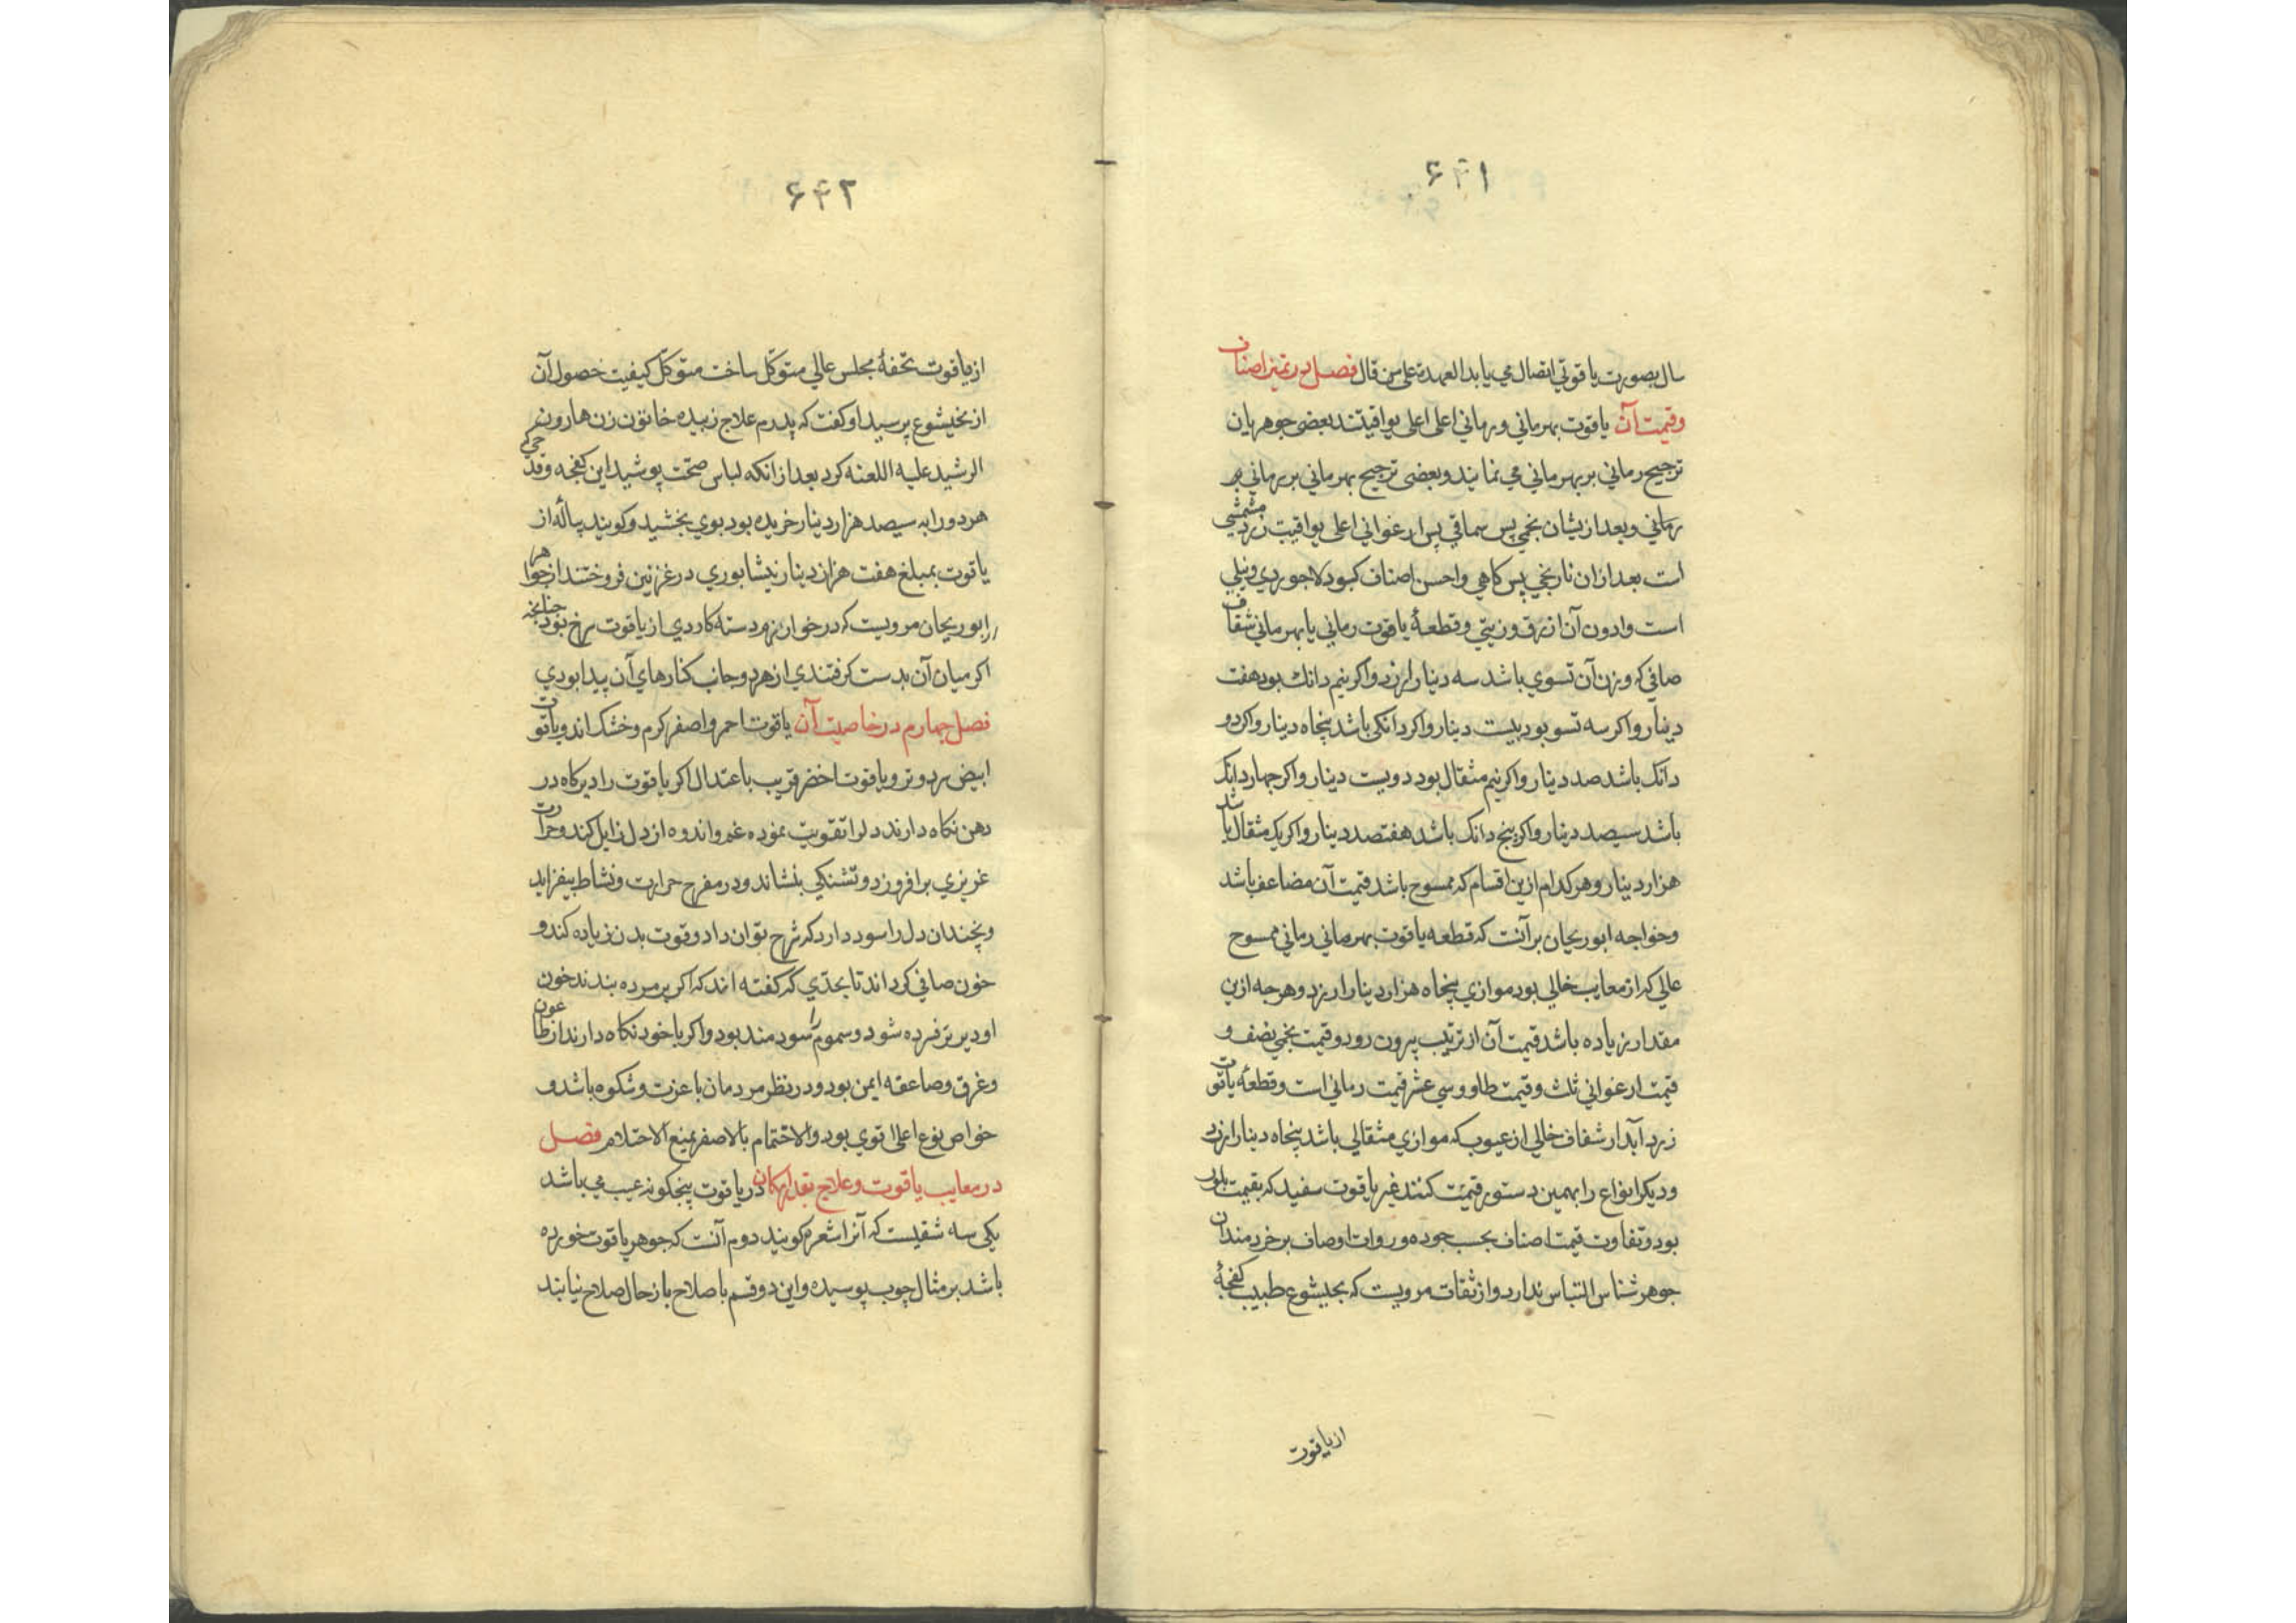 ۶۴۱
سال بصورت یاقوتی اتصال می یابد العهدة علی من قال فصل در تمیز اصناف
وقیمت آن یاقوت بهرمانی ورمانی اعلی اعلی یواقیتند بعضی جوهریان
ترجیح رمانی بر بهرمانی می نمایند وبعضی ترجیح بهرمانی بر
رمانی وبعد ازیشان بخمی پس سماقی پس ارغوانی اعلی یواقیت زرد مشمشی
است بعد ازان نارنجی پس کاهی واحسن اصناف کبود لاجوردی ونیلی
است وادون آن ازرق وزیتی وقطعهٔ یاقوت رمانی یا بهرمانی شفاف
صافی که وزن آن تسوی باشد سه دینار ارزد واکر نیم دانك بود هفت
دینار واکر سه تسو بود بیست دینار واکر دانکی باشد پنجاه دینار واکر دو
دانك باشد صد دینار واکر نیم مثقال بود دویست دینار واکر چهار دانك
باشد سیصد دینار واکر پنج دانك باشد هفتصد دینار واکر یک مثقال باشد
هزار دینار وهر کدام ازین اقسام که ممسوح باشد قیمت آن مضاعف باشد
وخواجه ابوریحان بر آنست که قطعه یاقوت بهرمانی رمانی ممسوح
عالی که از معایب خالی بود موازی پنجاه هزار دینار ارزد وهرجه ازین
مقدار زیاده باشد قیمت آن از ترتیب بیرون رود وقیمت بخمی نصف و
قیمت ارغوانی ثلث وقیمت طاووسی عشر قیمت رمانی است وقطعهٔ یاقوت
زرد آبدار شفاف خالی از عیوب که موازی مثقالی باشد پنجاه دینار ارزد
ودیکر انواع را بهمین دستور قیمت کنند غیر یاقوت سفید که بقیمت بلور
بود وتفاوت قیمت اصناف بحسب جوده وروات اوصاف بر خردمندان
جوهر شناس التباس ندارد واز ثقات مرویست که بخیشوع طبیب کفجهٔ
از یاقوت
۶۴۲
از یاقوت تحفهٔ مجلس عالی متوکّل ساخت متوکّل کیفیت حصول آن
از بخیشوع پرسید او کفت که پدرم علاج زبیده خاتون زن هارون
الرشید علیه اللعنه کرد بعد از انکه لباس صحّت پوشید این کفجه وقدحی که
هر دو را به سیصد هزار دینار خریده بود بوی بخشید وکویند پیالهٔ از
یاقوت بمبلغ هفت هزار دینار نیشابوری در غزنین فروختند از خواجه
ابوریحان مرویست که در خوان دسته کاردی از یاقوت سرخ بود چنانچه
اکر میان آن بدست کرفتندی از هر دو جانب کنارهای آن پیدا بودی
فصل چهارم در خاصیت آن یاقوت احمر واصفر کرم وخشک اند ویاقوت
ابیض سرد وتر ویاقوت اخضر قریب باعتدال اکر یاقوت را دیرکاه در
دهن نکاه دارند دلرا تقویت نموده غم واندوه از دل زایل کند وحرارت
غریزی بر افروزد وتشنکی بنشاند ودر مفرح حرارت ونشاط بیفزاید
وچندان دل را سود دارد که شرح توان داد وقوت بدن زیاده کند و
خون صافی کرداند تا بحدّی که کفته اند که اکر بر مرده بندند خون
او دیرتر فسرده شود وسموم را سودمند بود واکر با خود نکاه دارند از طاعون
وغرق وصاعقه ایمن بود ودر نظر مردمان با عزت وشکوه باشد و
خواص نوع اعلا اقوی بود والاختتام بالاصفر یمنع الاحتلام فصل
در معایب یاقوت وعلاج بقدر امکان در یاقوت پنجکونه عیب می باشد
یکی سه شقیست که آنرا شعره کویند دوم آنست که جوهر یاقوت خورده
باشد بر مثال چوب پوسیده واین دو قسم باصلاح باز حال صلاح نیابند